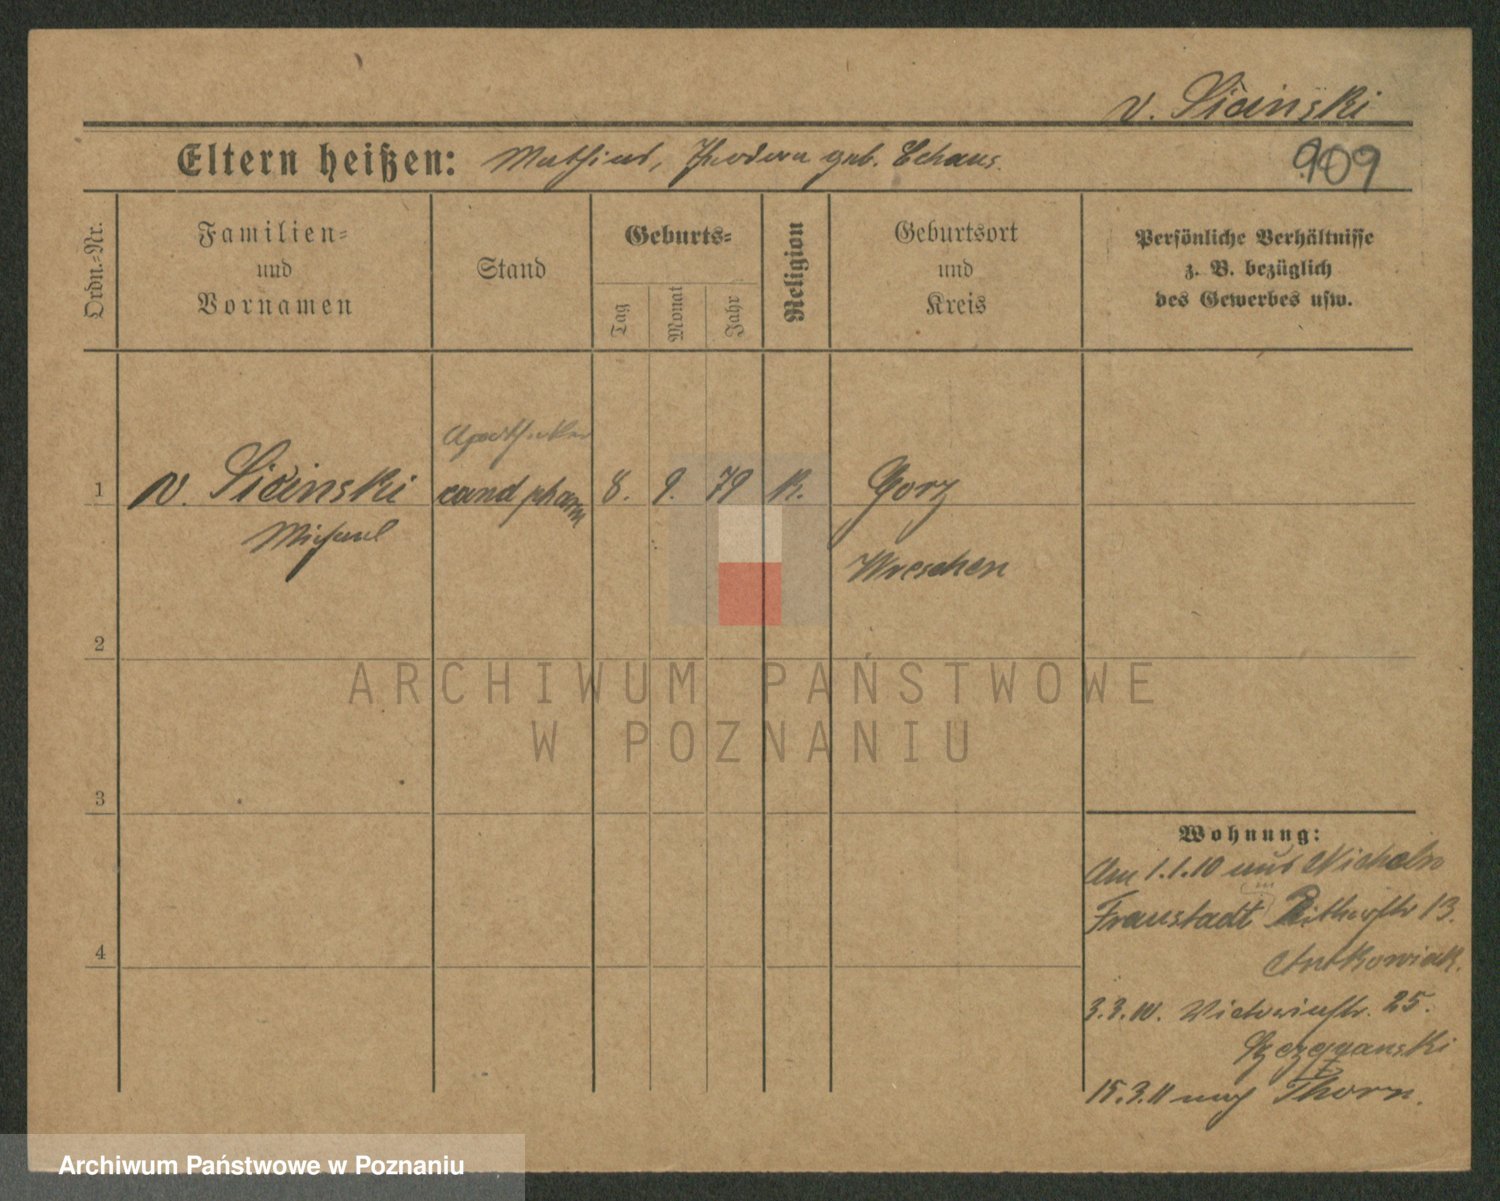 v. Sicinski
Eltern heißen: Mathias, Theodora geb. Echaus.
909
Ordn.-Nr.
Familien-
und
Vornamen
Stand
Geburts-
Tag
Monat
Jahr
Religion
Geburtsort
und
Kreis
Persönliche Verhältnisse
z. B. bezüglich
des Gewerbes usw.
Apotheker
1 v. Sicinski cand pharm 8. 9. 79 K. Gorz
Michael
Wreschen
2
3
4
Wohnung:
Am 1.1.10 aus
Fraustadt Ritterstr 13.
Antkowiak.
3.3.10. Victoriastr. 25.
15.3.11 nach Thorn.
ARCHIWUM PAŃSTWOWE
W POZNANIU
Archiwum Państwowe w Poznaniu